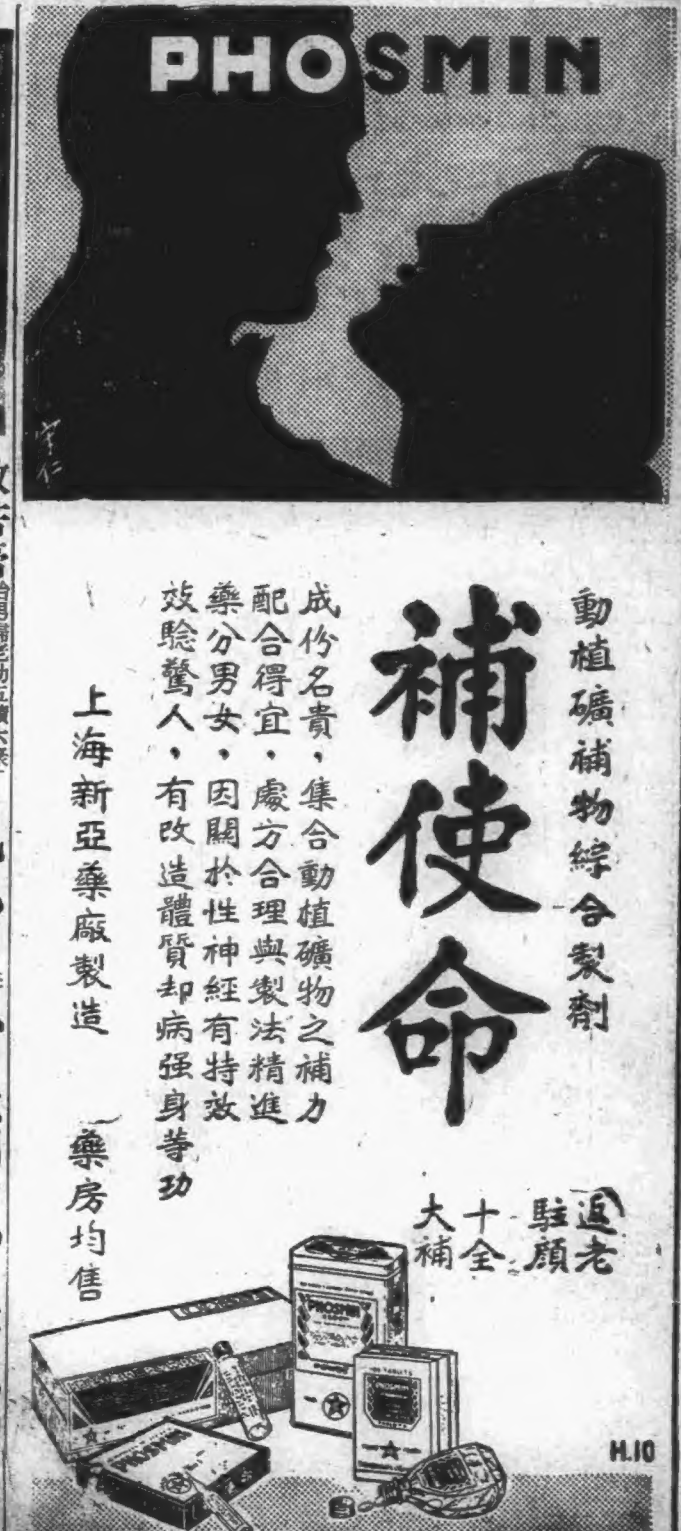 PHOSMIN
宇仁
動植礦補物綜合製劑
補使命
返老
駐顏
十全
大補
成份名貴，集合動植礦物之補力
配合得宜，處方合理與製法精進
藥分男女，因關於性神經有特效
效驗驚人，有改造體質却病强身等功
上海新亞藥廠製造 藥房均售
PHOSMIN
PHOSMIN
PHOSMIN
H.10